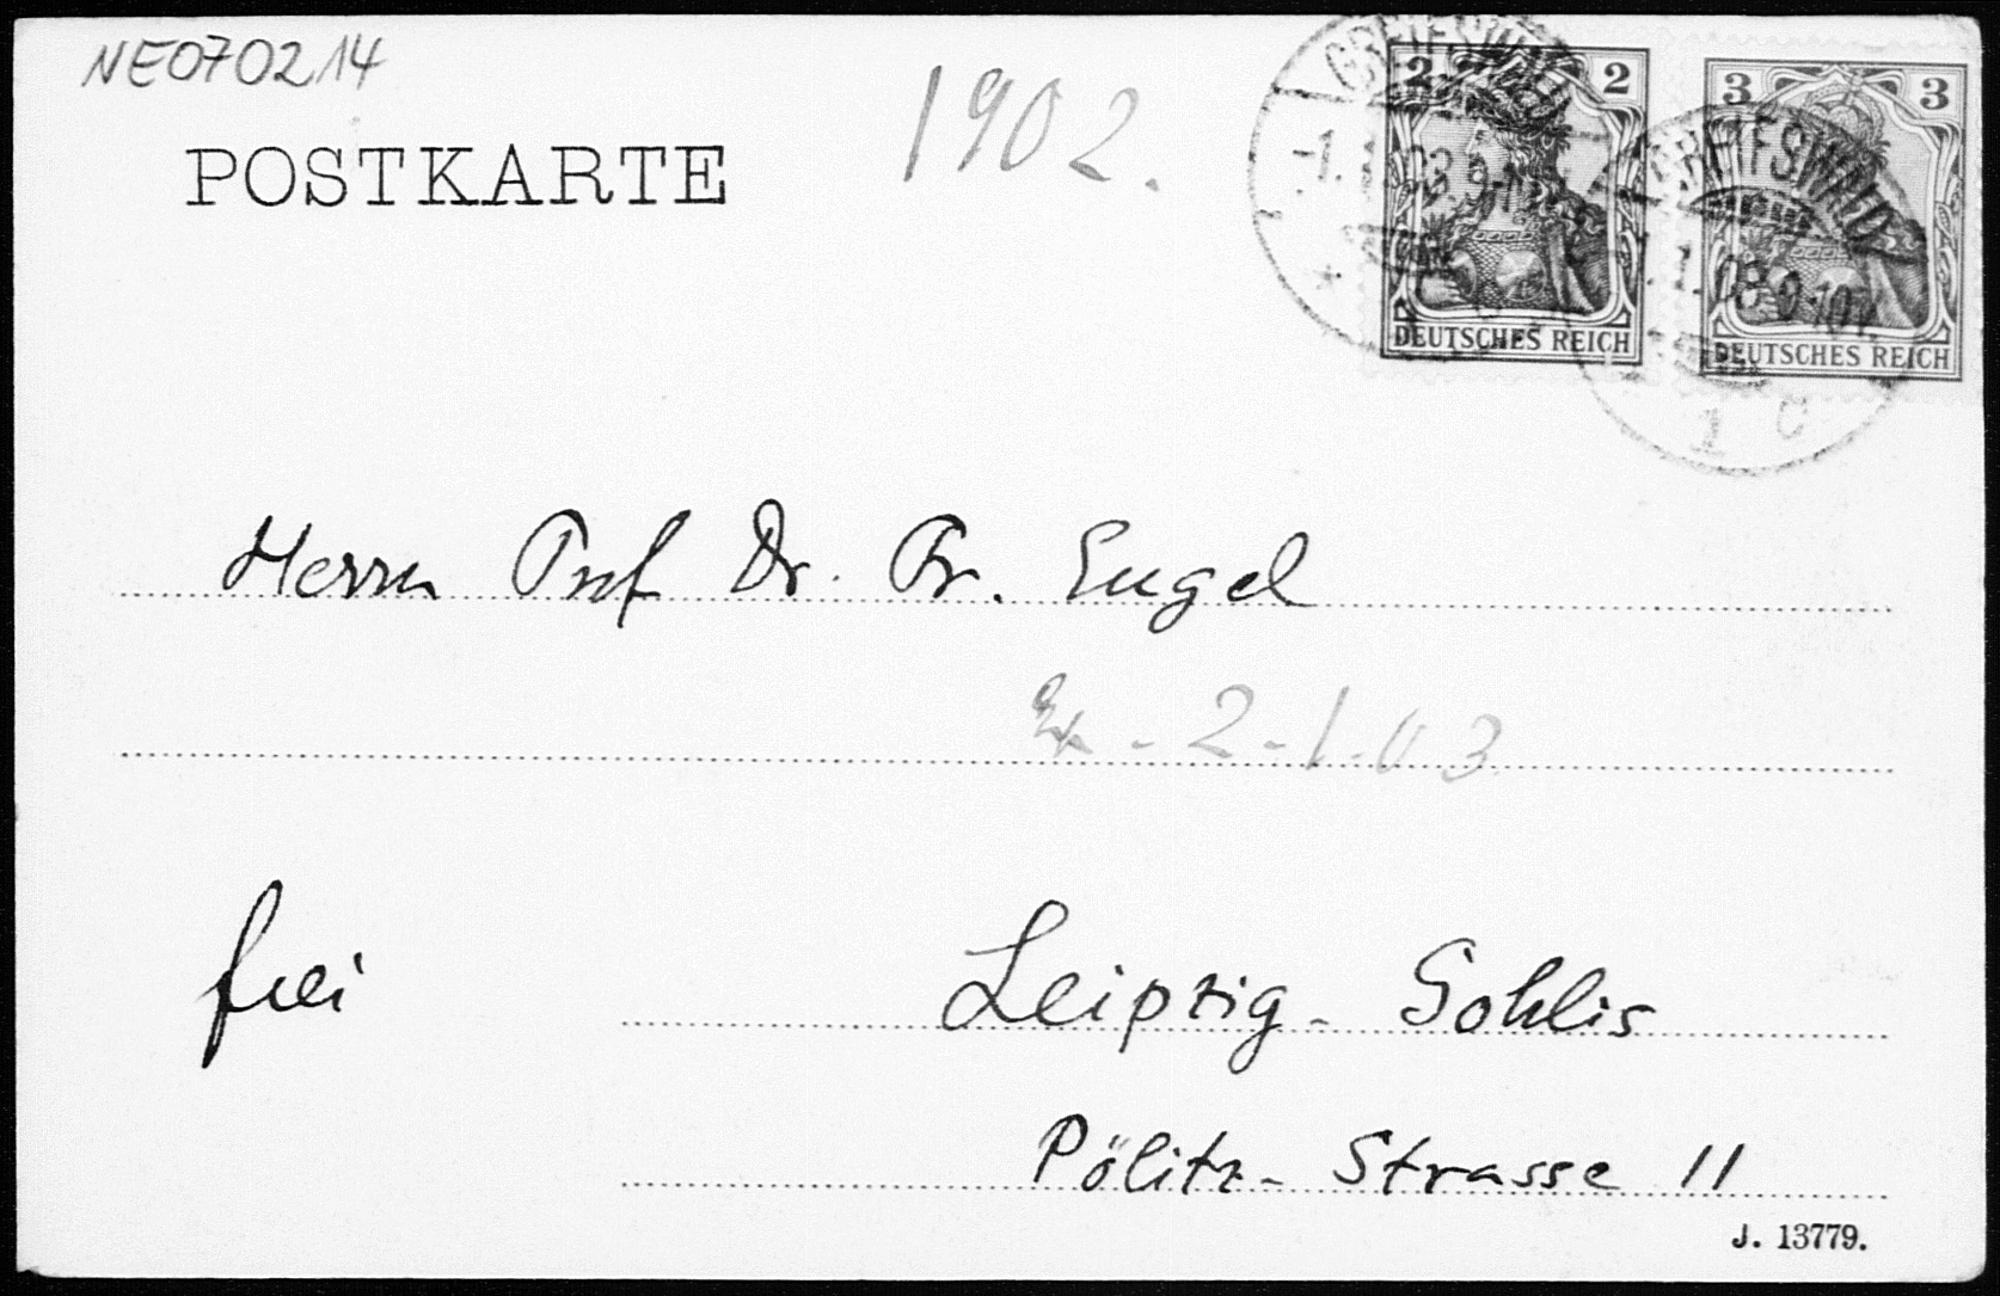 NE070214
POSTKARTE
1902.
GREIFSWALD
2 2
DEUTSCHES REICH
GREIFSWALD
3 3
DEUTSCHES REICH
1 C
Herrn Prof Dr. Fr. Engel
2-1-03
frei
Leipzig-Gohlis
Pölitz-Strasse 11
J. 13779.